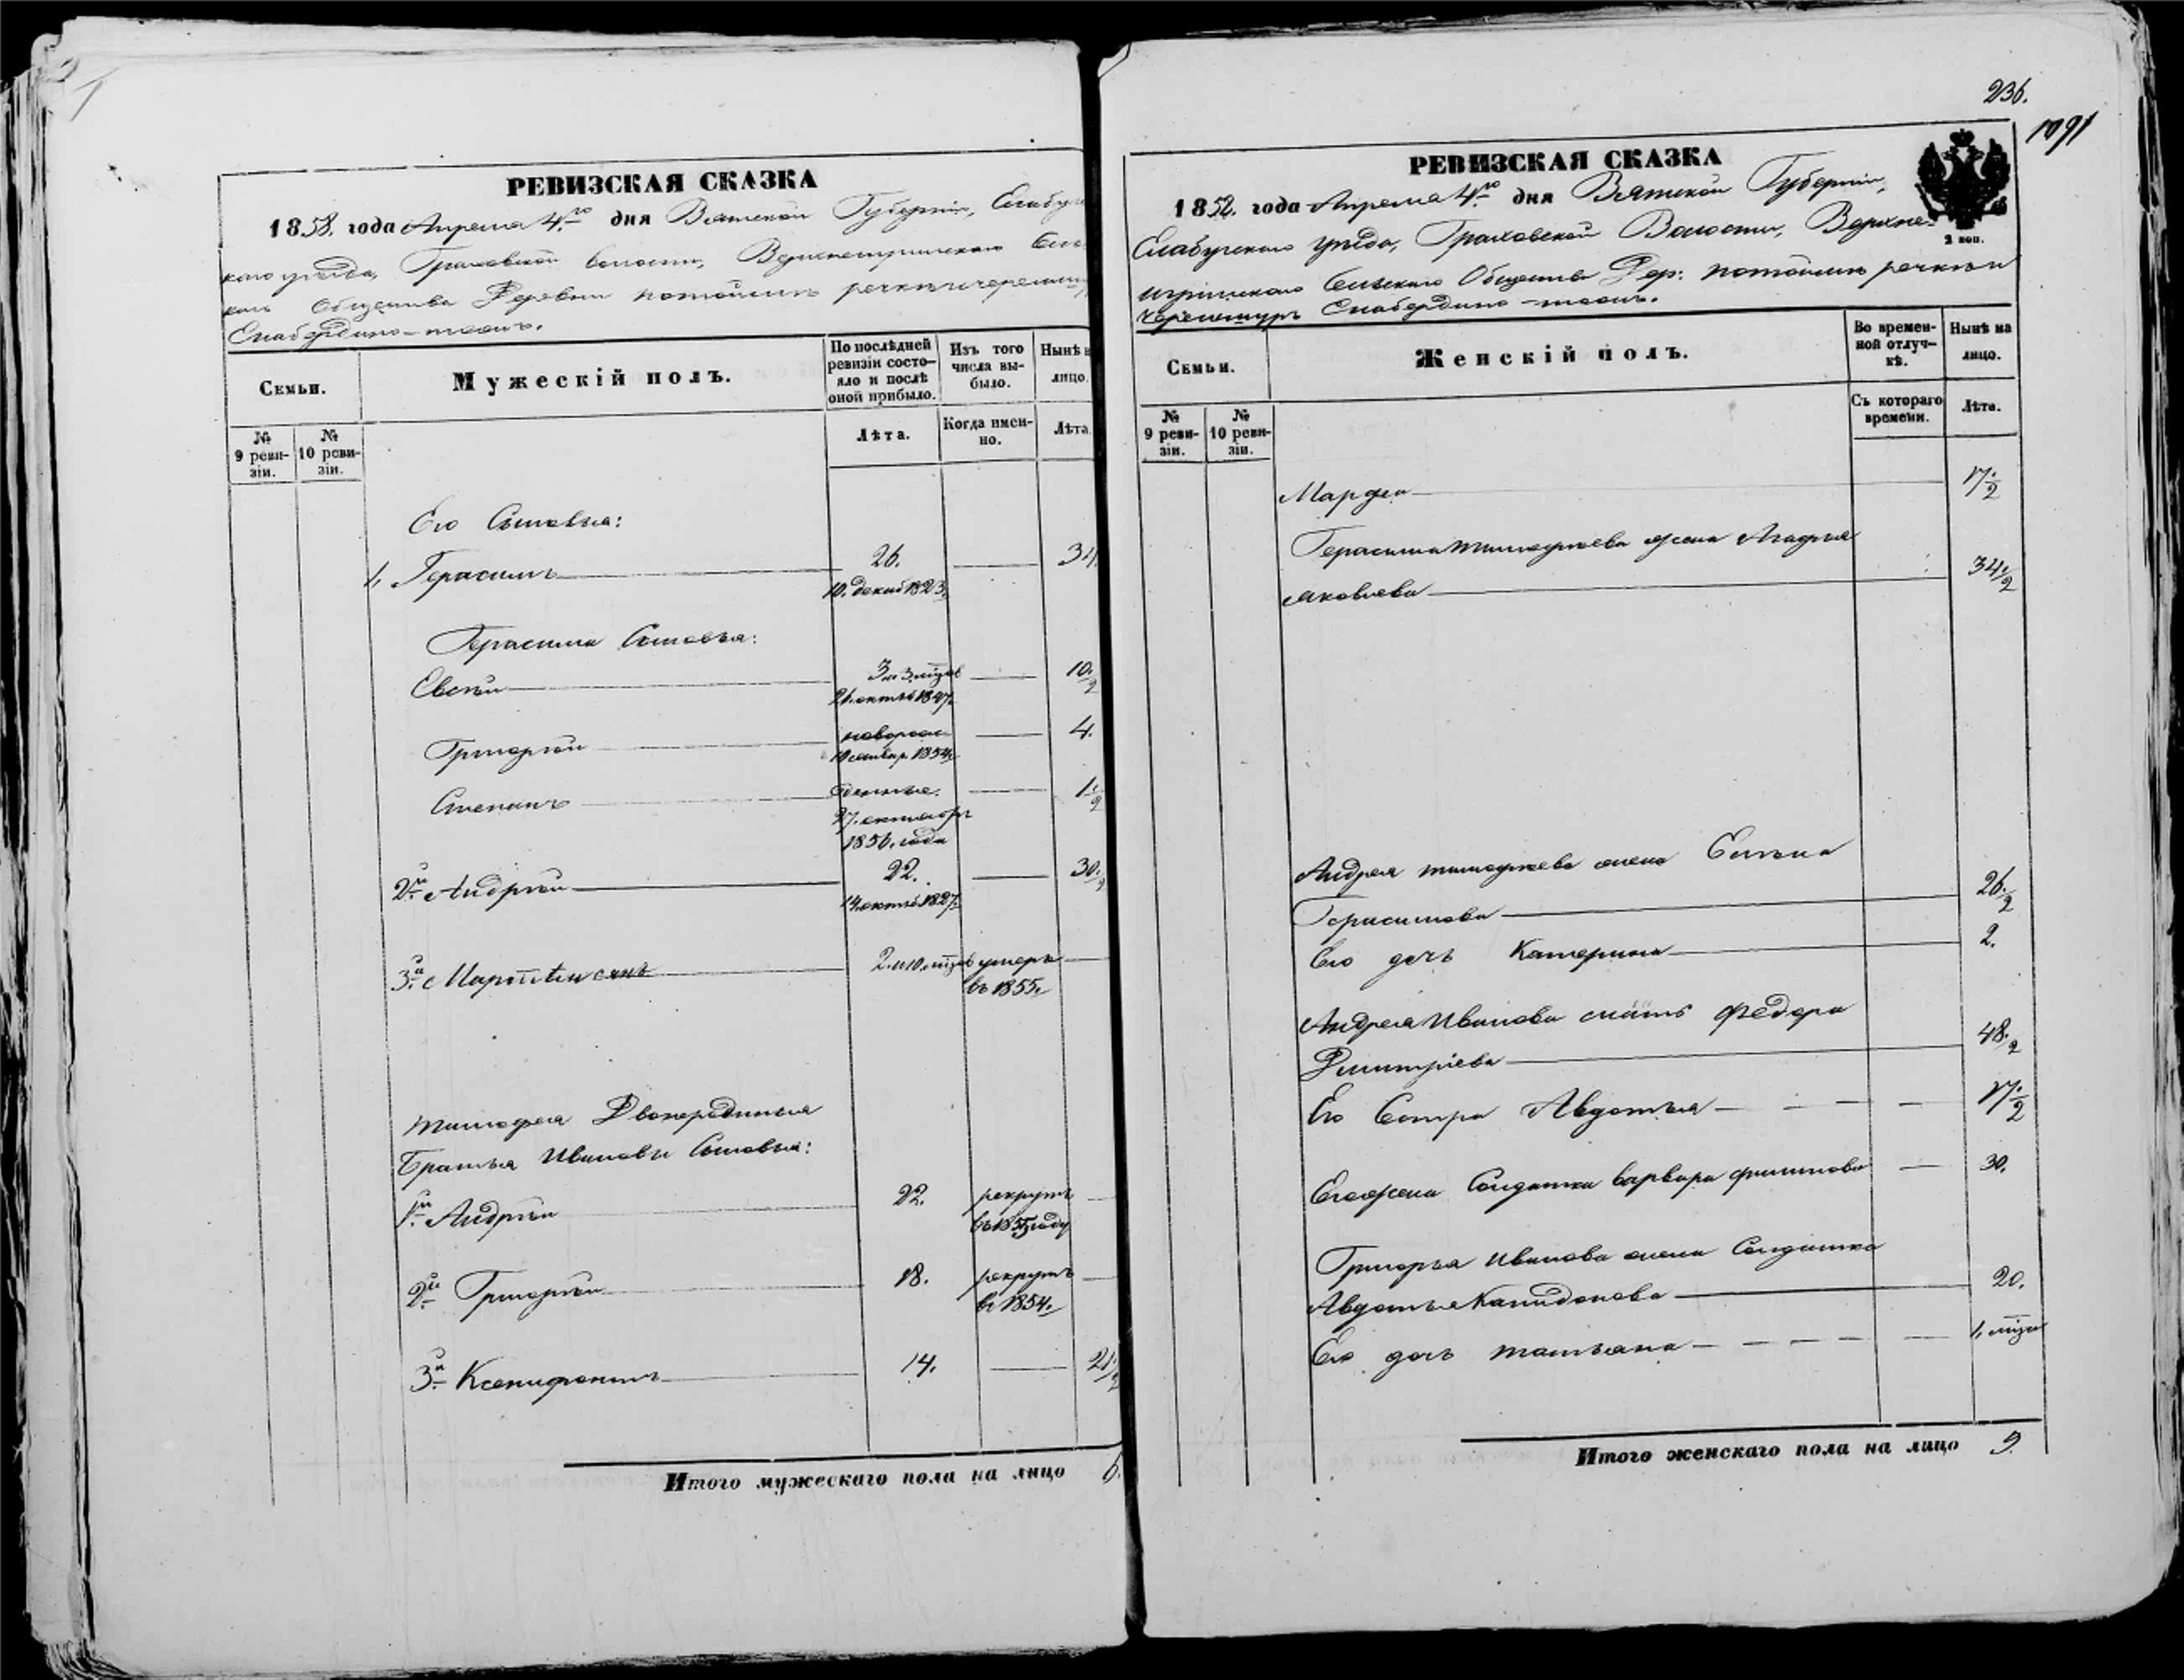 РЕВИЗСКАЯ СКАЗКА
1858. года Апреля 4го дня Вятской Губерніи, Елабуж
каго уѣзда, Граховской волости, Верхнеигринскаго Сель
каго Общества Деревни
РЕВИЗСКАЯ СКАЗКА
Семьи.
Мужескій полъ.
По послѣдней ревизіи состо-
яло и послѣ
оной прибыло.
Изъ того
числа вы-
было.
Нынѣ н
лицо.
№
9 реви-
зіи.
№
10 реви-
зіи.
Лѣта.
Когда имен-
но.
Лѣта
Его Сыновья:
1, Герасимъ 26. 34.
10. декаб 1823.
Герасима Сыновья:
Евсѣй 3 10 1/2
21. октяб 1847.
Григорій новорож 4.
10 1854.
Степанъ 1 1/2
27. октября
1856. года
2й Андрей 22. 30 1/2
14. октяб 1827.
3й Мартемьянъ 2. и 10. мѣсяц умеръ
въ 1855.
Тимофея Двоюродныя
Братья Ивановы Сыновья:
1й Андрей 22. рекрутъ
въ 1855 году
2й Григорій 18. рекрутъ
въ 1854.
3й Ксенифонтъ 14. 21 1/2
Итого мужескаго пола на лицо 6.
236.
1091
РЕВИЗСКАЯ СКАЗКА
1858. года Апреля 4го дня Вятской Губерніи,
Елабужскаго уѣзда, Граховской Волости, Верхне-
игринскаго Сельскаго Общества Дер:
2 коп.
Семьи.
Женскій полъ.
Во времен-
ной отлуч-
кѣ.
Нынѣ на
лицо.
№
9 реви-
зіи.
№
10 реви-
зіи.
Съ котораго
времени.
Лѣта.
Марфа 17 1/2
Герасима Тимофеева жена Агафья
Яковлева 34 1/2
Андрея Тимофеева жена
Герасимова 26 1/2
Его дочь Катерина 2.
Андрея Иванова мать Федора
Дмитріева 48 1/2
Его Сестра Авдотья 17 1/2
Его жена Солдатка Варвара 30.
Григорья Иванова жена Солдатка
Авдотья 20.
Его дочь Татьяна 1. мѣсяц
Итого женскаго пола на лицо 9.